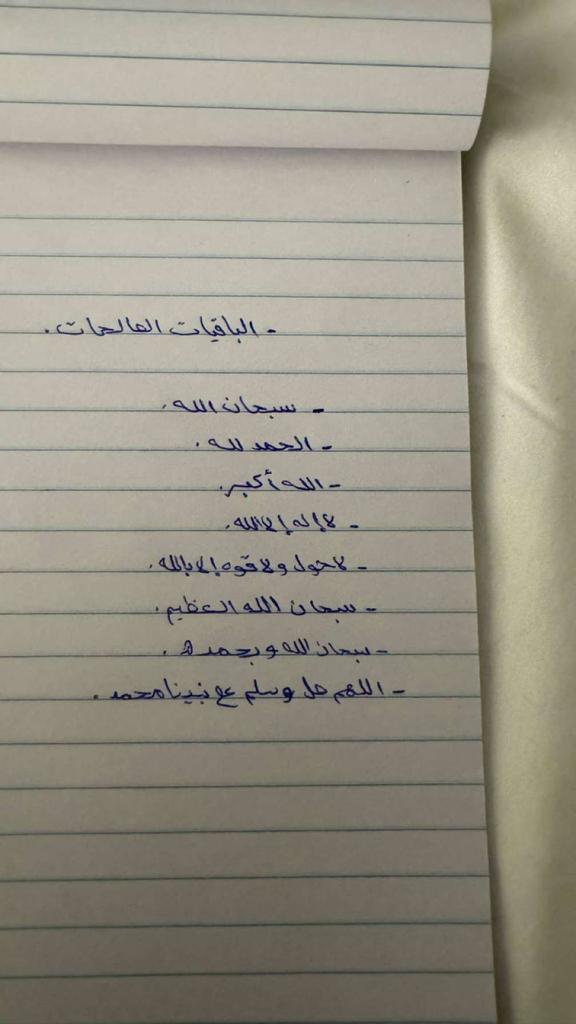 - الباقيات الصالحات.
- سبحان الله.
- الحمد لله.
- الله أكبر.
- لا إله إلا الله.
- لا حول ولا قوه إلا بالله.
- سبحان الله العظيم.
- سبحان الله وبحمده.
- اللهم صل وسلم ع نبينا محمد.